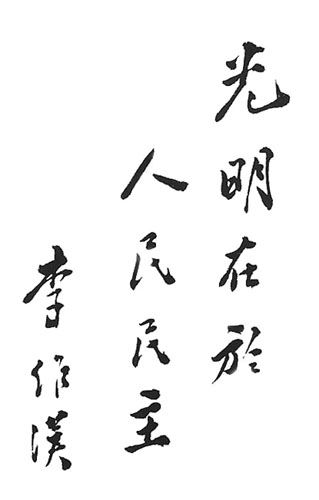 光明在於
人民民主
李作漢